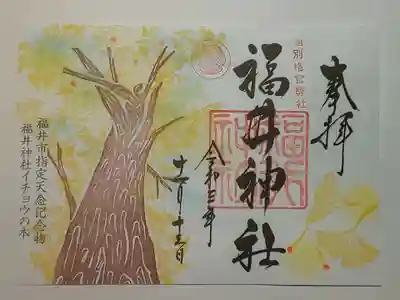 奉拝
旧別格官幣社
福井神社
福井
神社
令和三年
十一月十三日
福井市指定天然記念物
福井神社イチョウの木